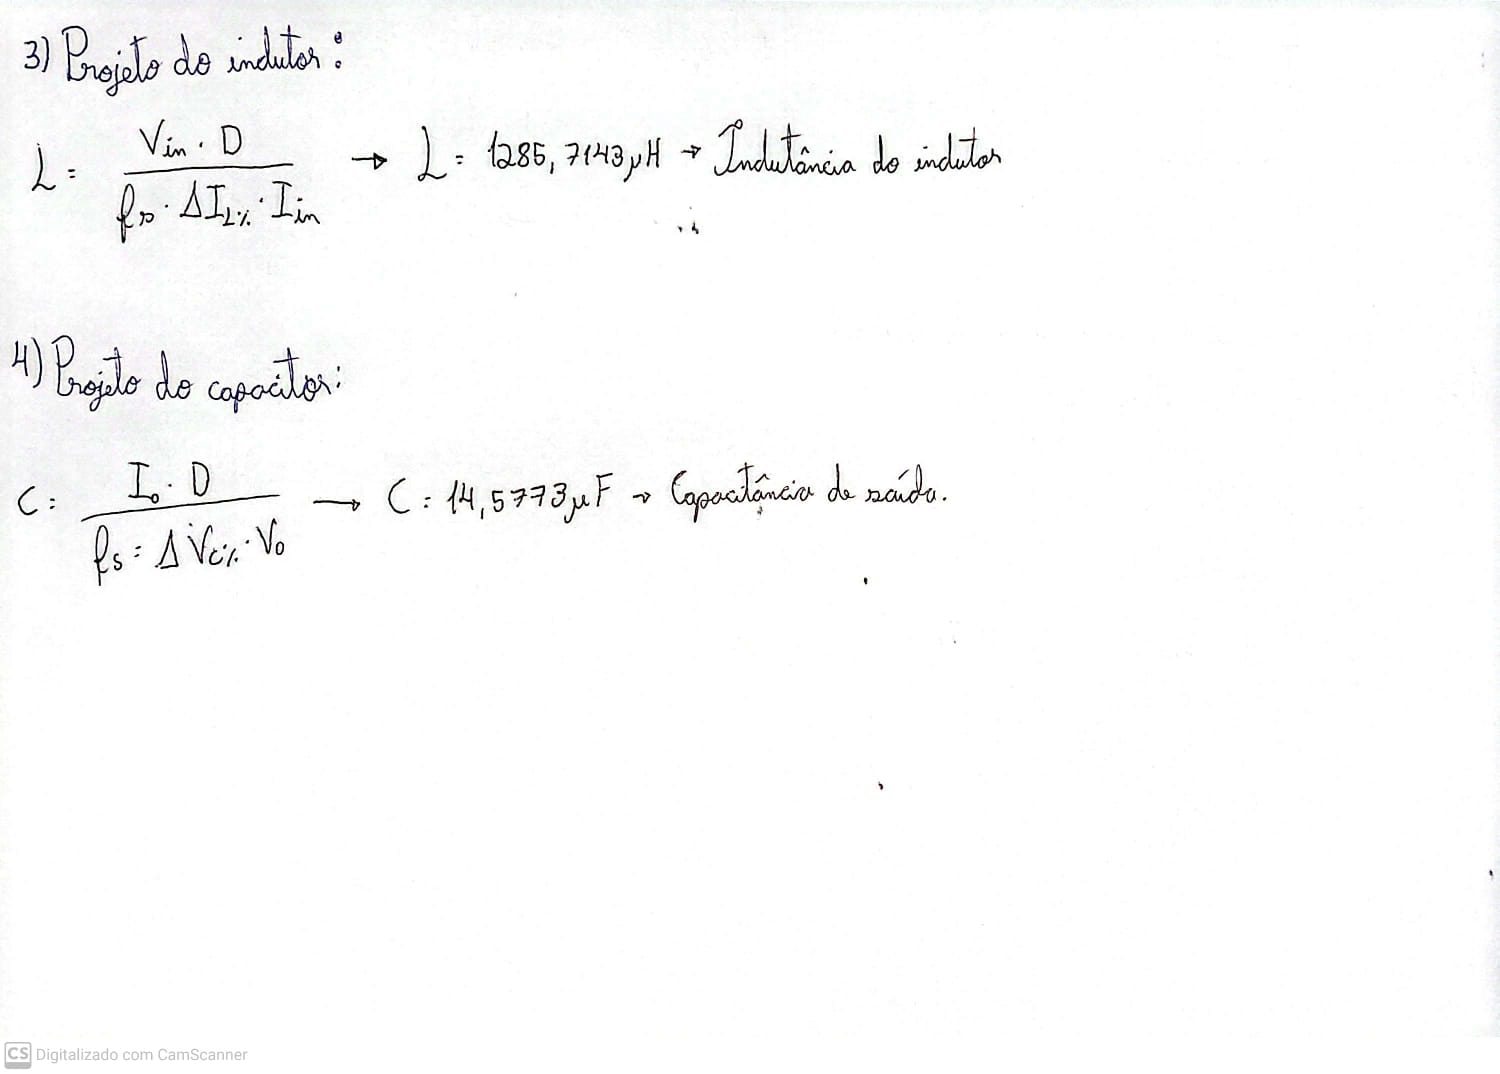 3) Projeto do indutor:
L = Vin · D / fs · ΔIL% · Iin → L = 1285,7143 μH → Indutância do indutor
4) Projeto do capacitor:
C = Io · D / fs = ΔVc% · Vo → C = 14,5773 μF → Capacitância de saída.
CS Digitalizado com CamScanner